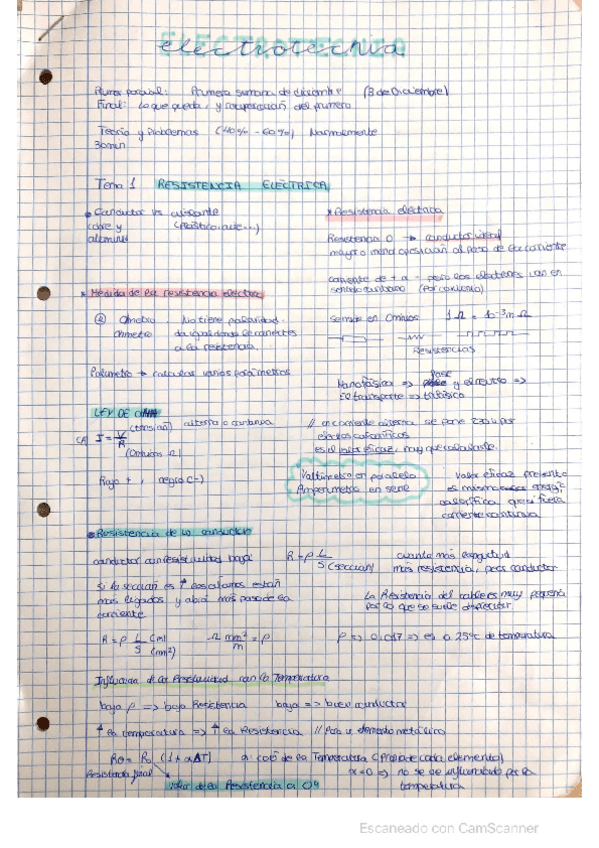 ELECTROTECNIA
electrotecnia
Primer parcial: Primera semana de diciembre (3 de Diciembre)
Final: Lo que queda, y recuperación del primero
Teoría y Problemas (40% - 60%) Normalmente
30min
Tema 1 RESISTENCIA ELÉCTRICA
Conductor vs aislante
cobre y
aluminio
* Resistencia eléctrica
Resistencia 0 → conductor ideal
mayor o menor oposición al paso de la corriente
corriente de + a - pero los electrones van en
sentido contrario (por convenio)
* Medida de la resistencia electr.
Ω Ohmetro . No tiene polaridad.
Ohmetro da igual donde conectes
a la resistencia.
Polimetro → calcular varios parámetros
Se mide en Ohmios 1 Ω = 10⁻³ m Ω
Resistencias
Monofásica => fase y circuito =>
El transporte => trifásico
LEY DE OHM
CA I = V/R (tensión) alterna o continua
(Ohmios Ω)
Rojo + , negro (-)
// en corriente alterna se pone 230V por
efectos caloríficos
es el valor eficaz, muy que calculable.
Voltímetro en paralelo
Amperimetro en serie
Valor eficaz presento
es misma energ.
calorífica que si fuera
corriente continua
Resistencia de un conductor
conductor con resistividad baja
R = ρ L/S (sección)
cuanta más longitud
más resistencia, peor conductor
Si la sección es ↑ los átomos están
más ligados y abrá más paso de la
corriente
La Resistencia del cable es muy pequeña
por lo que se suele despreciar
R = ρ L/S (m) (mm²)
Ω mm²/m = ρ
ρ => 0,017 => es a 25°C de temperatura
Influencia de la Resistividad con la Temperatura
baja ρ => baja Resistencia baja => buen conductor
↑ la temperatura => ↑ la Resistencia // Para un elemento metálico
Rθ = R₀ (1+αΔT) α: coef de la Temperatura (Propio de cada elemento)
Resistencia final
α=0 => no se ve influenciado por la
temperatura
Valor de la Resistencia a 0°
Escaneado con CamScanner